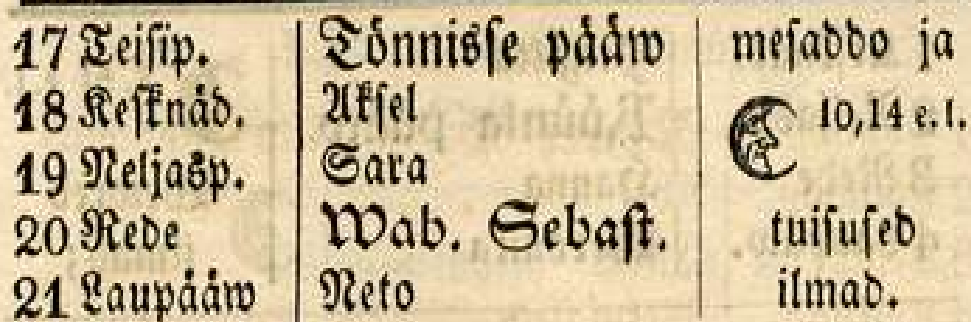 17 Teisip. Tönnisse pääw mesaddo ja
18 Kesknäd. Aksel 10,14 e. l.
19 Neljasp. Sara
20 Rede Wab. Sebast. tuisused
21 Laupääw Neto ilmad.